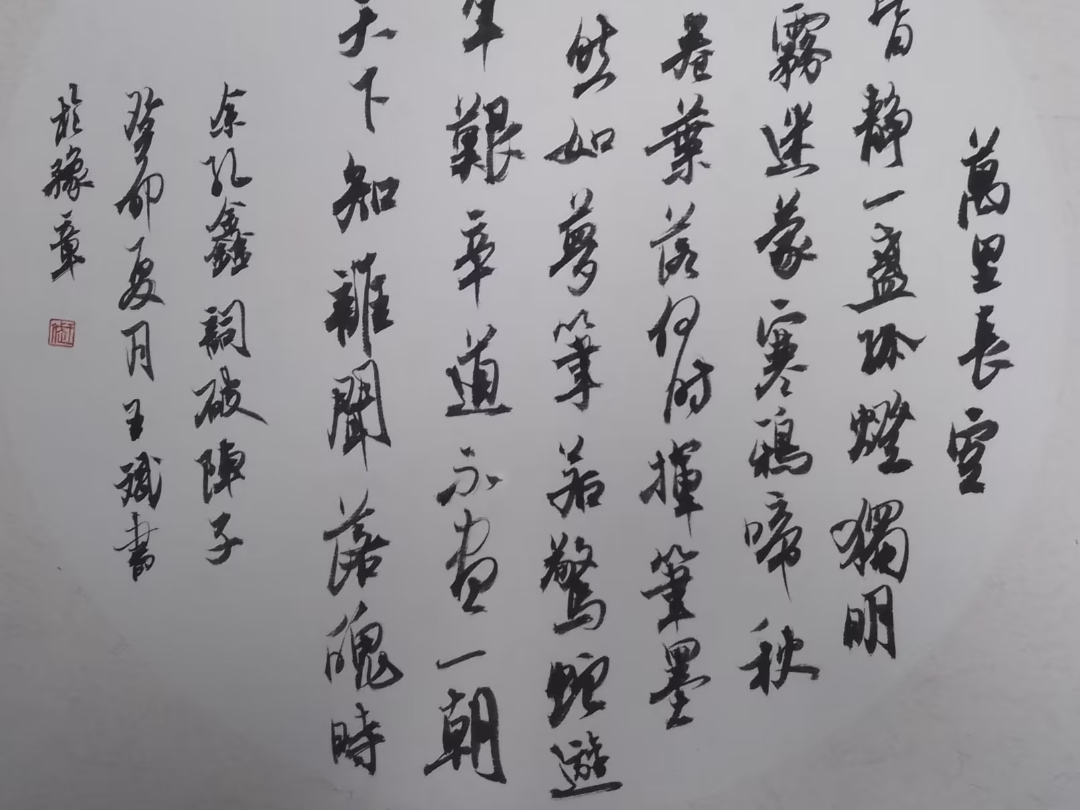 萬里長空
皆靜一盞孤燈獨明
霧迷蒙寒鴉啼秋
卷葉落何時揮筆墨
然如夢筆若驚蛇遊
年艱辛道不盡一朝
天下知誰聞落魄時
余孔鑫詞破陣子
癸卯夏月王斌書
於豫章